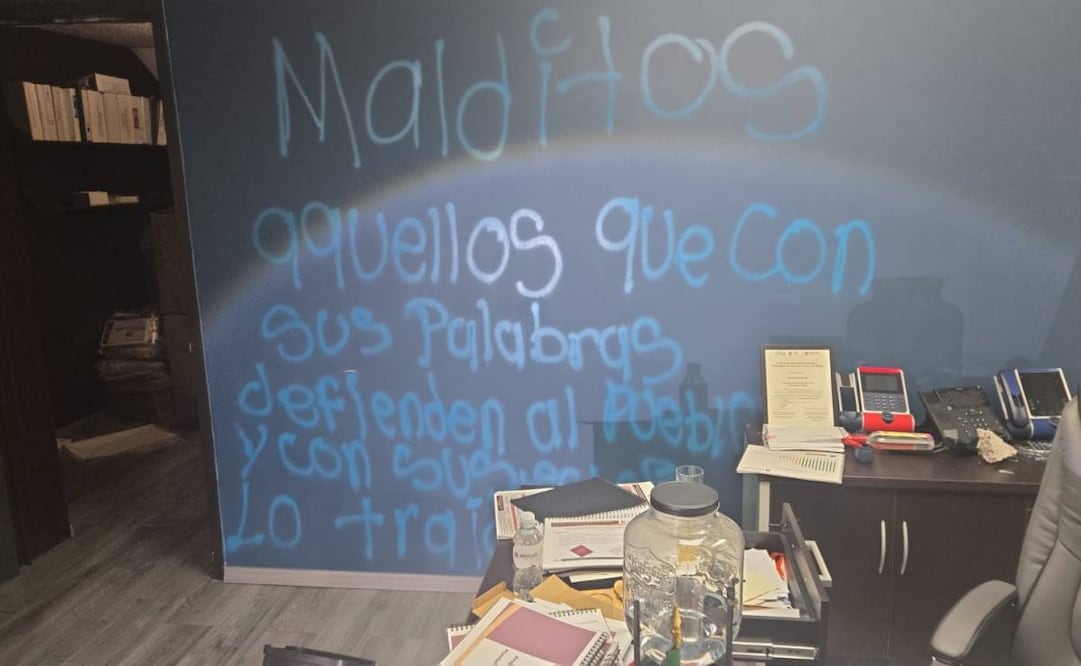 Malditos
aquellos que con
sus Palabras
defienden al Pueblo
y con sus
Lo